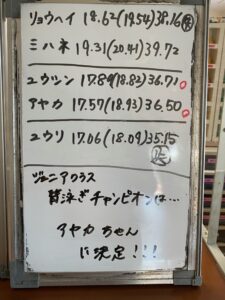 リョウヘイ 18.62(19.54)38.16
ミハネ 19.31(20.41)39.72
ユウシン 17.89(18.82)36.71
アヤカ 17.57(18.93)36.50
ユウリ 17.06(18.09)35.15
ジュニアクラス
背泳ぎチャンピオンは…
アヤカちゃん
に決定!!!